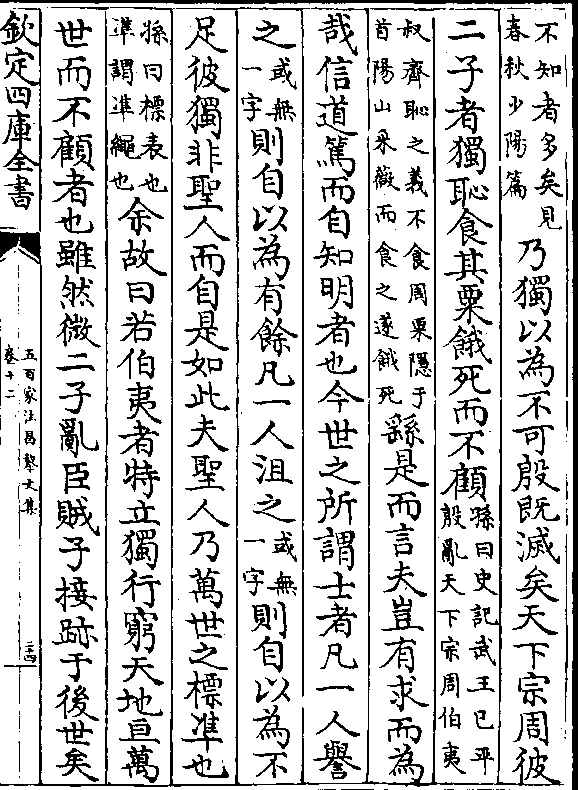 不知者多矣見
春秋少陽篇
乃獨以為不可殷既滅矣天下宗周彼
二子者獨恥食其粟餓死而不顧
孫曰史記武王已平
殷亂天下宗周伯夷
叔齊恥之義不食周粟隱于
首陽山采薇而食之遂餓死
繇是而言夫豈有求而為
哉信道篤而自知明者也今世之所謂士者凡一人譽
之
或無
一字
則自以為有餘凡一人沮之
或無
一字
則自以為不
足彼獨非聖人而自是如此夫聖人乃萬世之標準也
孫曰標表也
準謂準繩也
余故曰若伯夷者特立獨行窮天地亘萬
世而不顧者也雖然微二子亂臣賊子接跡于後世矣
欽定四庫全書
五百家注昌黎文集
卷十二
二四